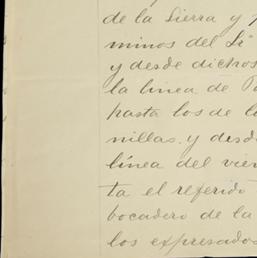 de la Sierra y
minos del
y desde dichos
la linea de
hasta los de
nillas, y desde
línea del
ta el referido
bocadero de la
los expresados